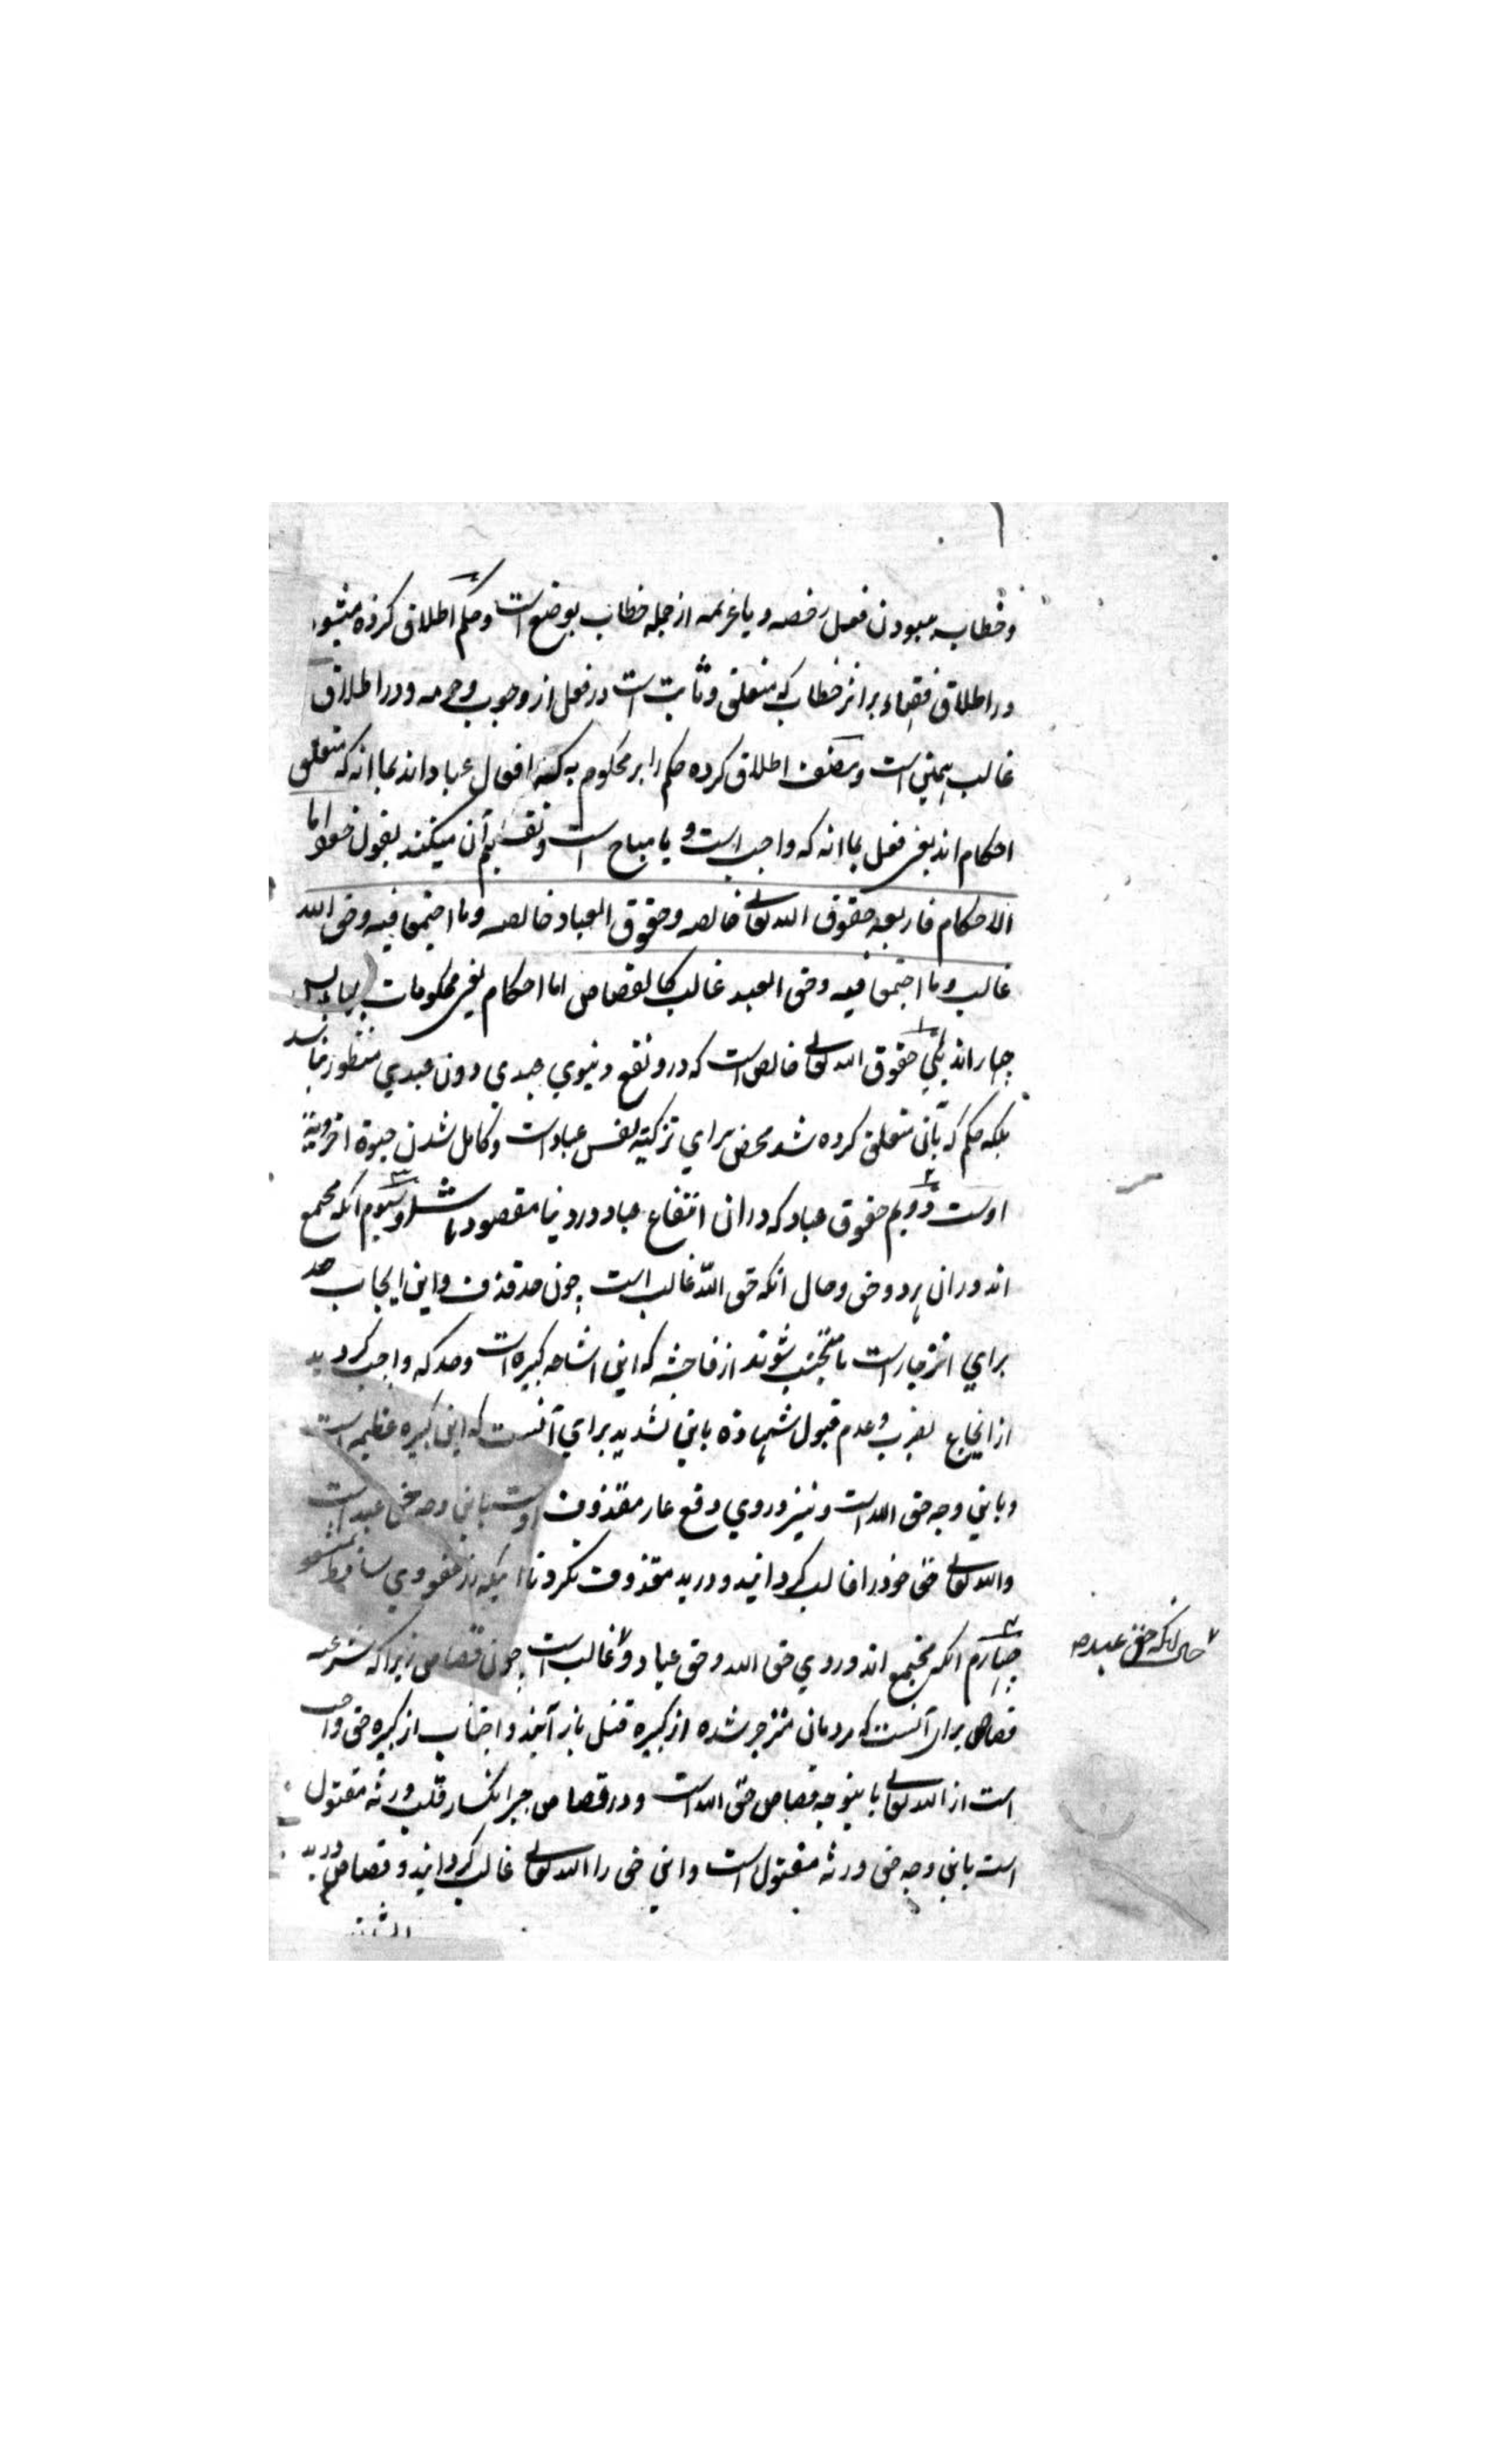 و خطاب مبودن فعل رخصه و یا عزیمه از جمله خطاب بوضع است و حکم اطلاق کرده میشود
در اطلاق فقهاء بر اثر خطاب که متعلق و ثابت است در فعل از وجوب و حرمه و در اطلاق
غالب همین است و مصنف اطلاق کرده حکم را بر محکوم به که افعال عباد اند بما انه که متعلق
احکام اند یعنی فعل بما انه که واجب است و یا مباح است و تقسیم آن میکند بقول خود اما
الاحکام فاربعه حقوق الله تعالی خالصه و حقوق العباد خالصه و ما اجتمعا فیه و حق الله
غالب و ما اجتمعا فیه و حق العبد غالب کالقصاص اما احکام یعنی محکومات
چهار اند یکی حقوق الله تعالی خالص است که درو نفع دنیوی عبدی دون عبدی منظور نباشد
بلکه حکم که بآن متعلق کرده شد محض برای تزکیه نفس عباد است و کامل شدن حیوة اخرویة
اوست دویم حقوق عباد که دران انتفاع عباد در دنیا مقصود باشد و سیوم انکه مجتمع
اند دران هر دو حق و حال انکه حق الله غالب است چون حد قذف و این ایجاب حد
برای انزجار است تا مجتنب شوند از فاحشه که این اشاعه کبیره است و حد که واجب کردید
از ایجاع بضرب و عدم قبول شهادة باین تشدید برای آنست که این کبیره عظیمه است
و باین وجه حق الله است و نیز در وی دفع عار مقذوف است باین وجه حق عبد است
و الله تعالی حق خود را غالب کردانید و در ید مقذوف نکرد تا اینکه از عفو وی ساقط شود
چهارم انکه مجتمع اند در وی حق الله و حق عباد و غالب است چون قصاص زیرا که شرعیه
قصاص برای آنست که مردمان منزجر شده از کبیره قتل باز آیند و اجتناب از کبیره حق واجب
است از الله تعالی باینوجه قصاص حق الله است و در قصاص جبر انکسار قلب ورثه مقتول
است باین وجه حق ورثه مقتول است و این حق را الله تعالی غالب کردانید و قصاص در ید
حال انکه حق عبد